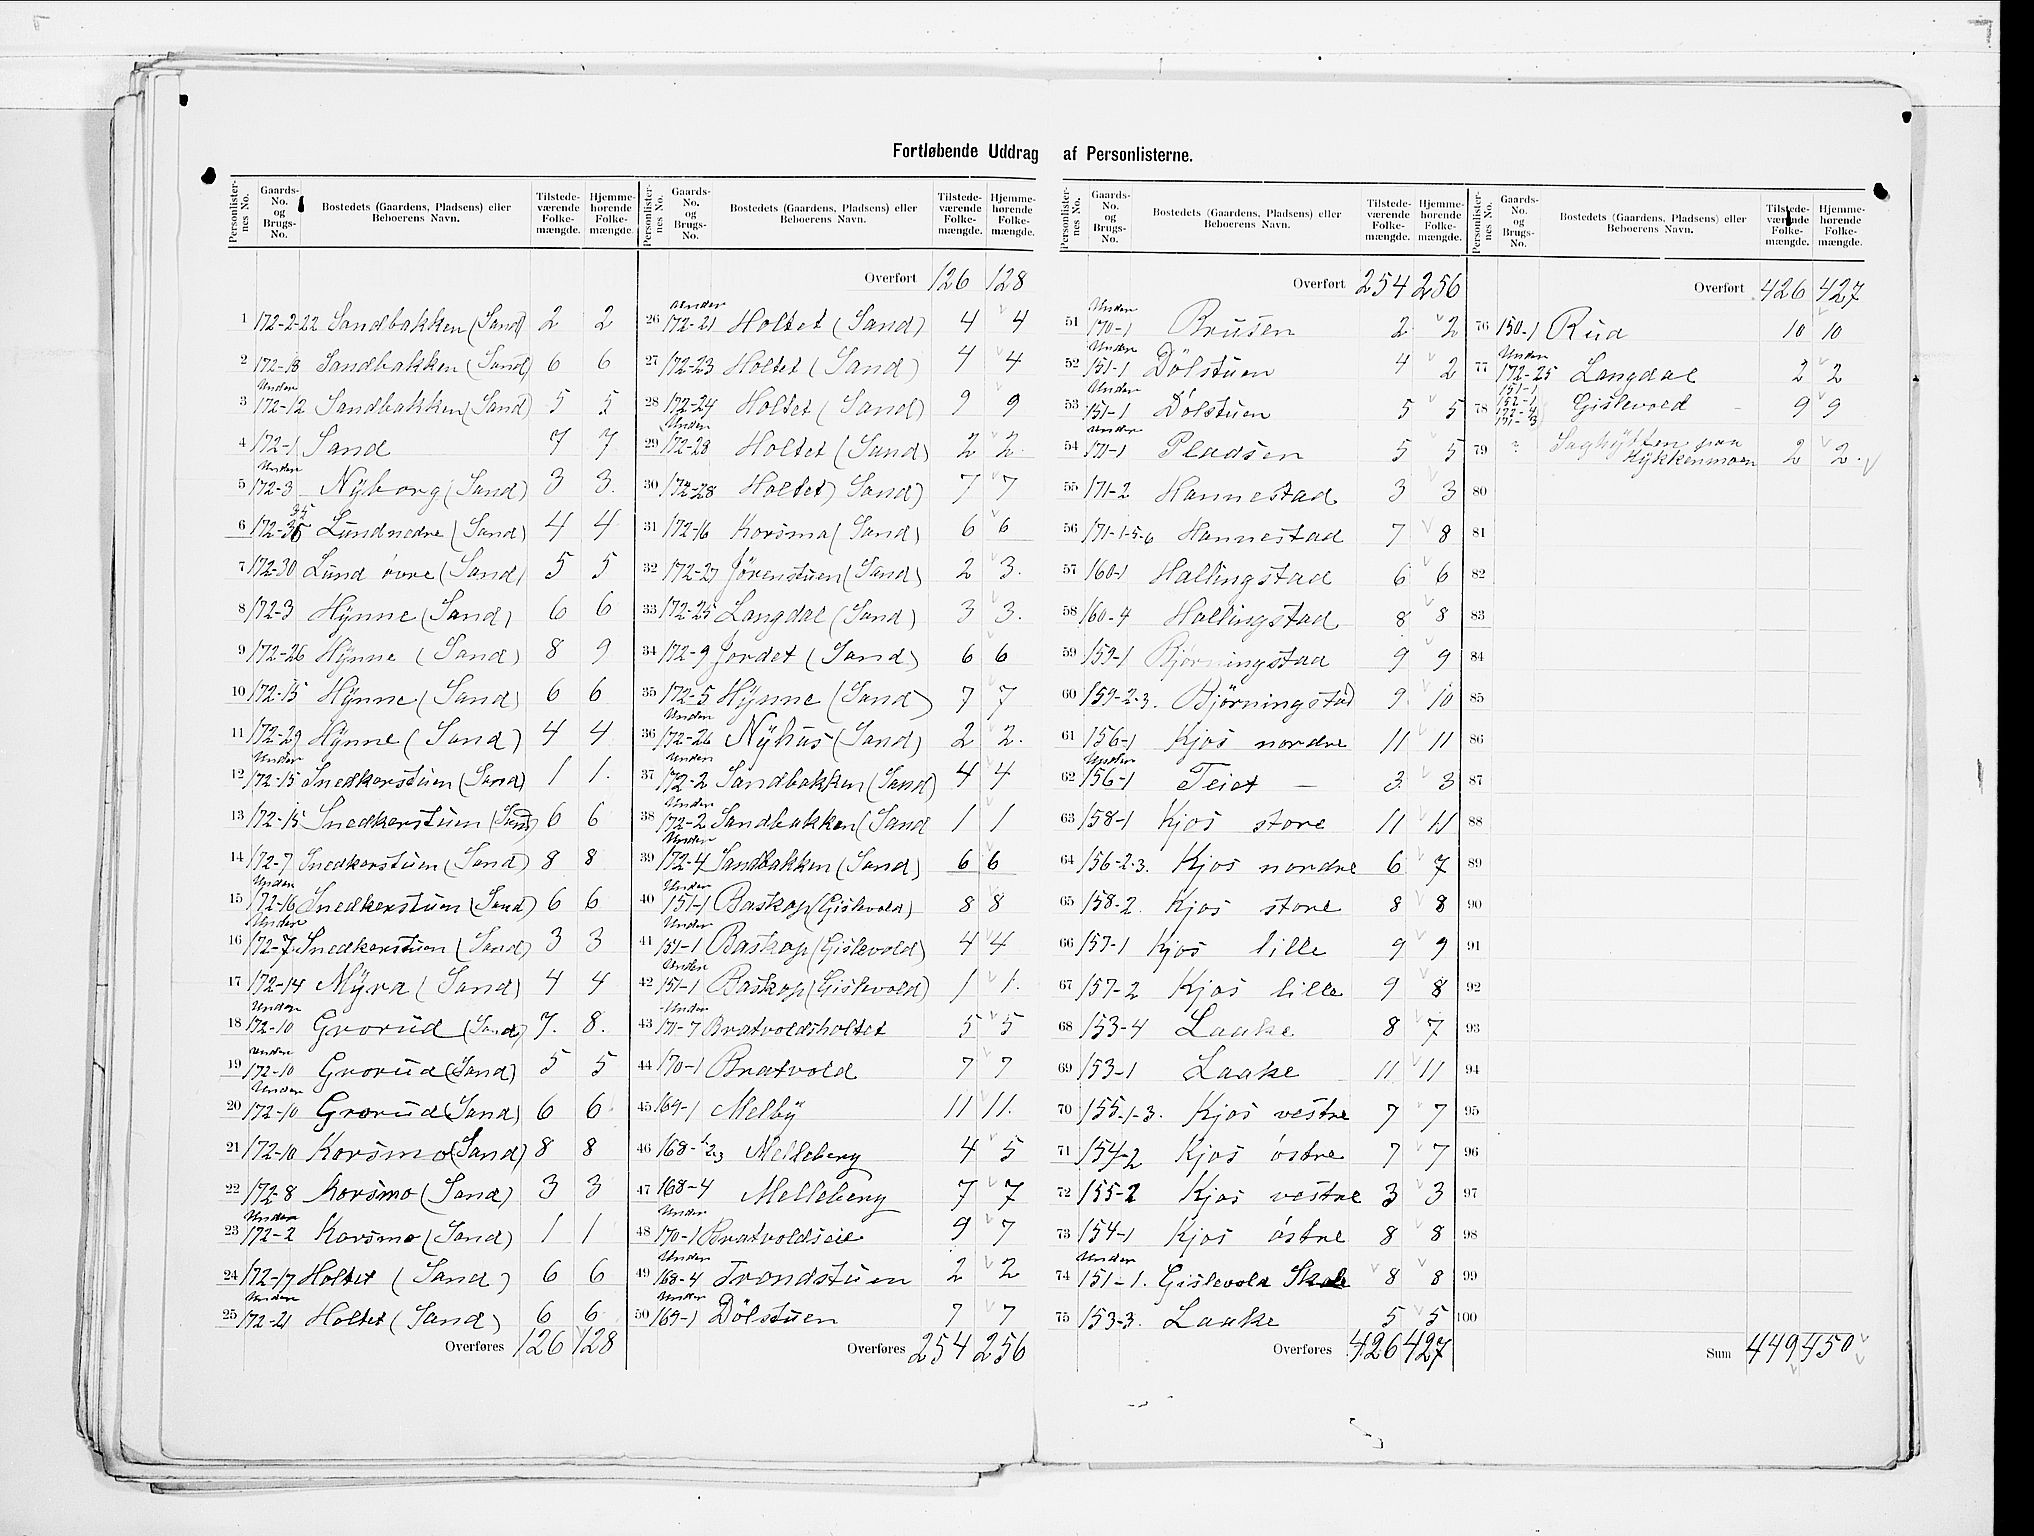 Fortløbende Uddrag af Personlisterne.
Personlister- nes No. Gaards- No. og Brugs- No. Bostedets (Gaardens, Pladsens) eller Beboerens Navn. Tilstede- værende Folke- mængde. Hjemme- hørende Folke- mængde.
1 172-2-22 Sandbakken (Sand) 2 2
2 172-18 Sandbakken (Sand) 6 6
3 Under 172-12 Sandbakken (Sand) 5 5
4 172-1 Sand 7 7
5 Under 172-3 Nÿborg (Sand) 3 3.
6 172-35 Lund nedre (Sand) 4 4
7 172-30 Lund övre (Sand) 5 5
8 172-3 Hÿnne (Sand) 6 6
9 172-26 Hÿnne (Sand) 8 9
10 172-15 Hÿnne (Sand) 6 6
11 172-29 Hÿnne (Sand) 4 4
12 Under 172-15 Snedkerstuen (Sand) 1 1.
13 172-15 Snedkerstuen (Sand) 6 6
14 172-7 Snedkerstuen (Sand) 8 8
15 Under 172-16 Snedkerstuen (Sand) 6 6
16 Under 172-7 Snedkerstuen (Sand) 3 3
17 172-14 Mÿra (Sand) 4 4
18 Under 172-10 Grorud (Sand) 7. 8.
19 Under 172-10 Grorud (Sand) 5 5
20 Under 172-10 Grorud (Sand) 6 6
21 172-10 Korsmo (Sand) 8 8
22 172-8 Korsmo (Sand) 3 3
23 Under 172-2 Korsmo (Sand) 1 1
24 172-17 Holtet (Sand) 6 6
25 Under 172-21 Holtet (Sand) 6 6
Overføres 126 128
Personlister- nes No. Gaards- No. og Brugs- No. Bostedets (Gaardens, Pladsens) eller Beboerens Navn. Tilstede- værende Folke- mængde. Hjemme- hørende Folke- mængde.
Overført 126 128
26 Under 172-21 Holtet (Sand) 4 4
27 172-23 Holtet (Sand) 4 4
28 172-24 Holtet (Sand) 9 9
29 Under 172-28 Holtet (Sand) 2 2
30 172-28 Holtet) Sand) 7 7
31 172-16 Korsmo (Sand) 6 6
32 172-27 Jörenstuen (Sand) 2 3.
33 172-25 Langdal (Sand) 3 3.
34 172-9 Jordet (Sand) 6 6
35 172-5 Hÿnne (Sand) 7 7
36 Under 172-26 Nÿhus (Sand) 2 2.
37 Under 172-2 Sandbakken (Sand) 4 4
38 Under 172-2 Sandbakken (Sand 1 1
39 Under 172-4 Sandbakken (Sand) 6 6
40 Under 151-1 Baskop (Gislevold) 8 8
41 Under 151-1 Baskop (Gislevold) 4 4
42 Under 151-1 Baskop (Gislevold) 1 1.
43 Under 171-7 Bratvoldsholtet 5 5
44 170-1 Bratvold 7 7
45 169-1 Melbÿ 11 11.
46 168-1,2,3 Melleberg 4 5
47 168-4 Melleberg 7 7
48 Under 170-1 Bratvoldseie 9 7
49 Under 168-4 Trondstuen 2 2
50 Under 169-1 Dölstuen 7 7
Overføres 254 256
Personlister- nes No. Gaards- No. og Brugs- No. Bostedets (Gaardens, Pladsens) eller Beboerens Navn. Tilstede- værende Folke- mængde. Hjemme- hørende Folke- mængde.
Overført 254 256
51 Under 170-1 Brusen 2 2
52 Under 151-1 Dölstuen 4 2
53 Under 151-1 Dölstuen 5 5
54 Under 171-1 Pladsen 5 5
55 171-2 Hannestad 3 3
56 171-1-5-6 Hannestad 7 8
57 160-1 Hallingstad 6 6
58 160-4 Hallingstad 8 8
59 159-1 Bjørningstad 9 9
60 159-2-3. Björningstad 9 10
61 156-1 Kjos nordre 11 11
62 Under 156-1 Teiet — 3 3
63 158-1 Kjos store 11 11
64 156-2-3. Kjos nordre 6 7
65 158-2 Kjos store 8 8
66 157-1 Kjos lille 9 9
67 157-2 Kjos lille 9 8
68 153-4 Laake 8 7
69 153-1 Laake 11 11
70 155-1-3. Kjos vestre 7 7
71 154-2 Kjos östre 7 7
72 155-2 Kjos vestre 3 3
73 154-1 Kjos östre 8 8
74 Under 151-1. Gislevold Skole 8 8
75 153-3. Laake 5 5
Overføres 426 427
Personlister- nes No. Gaards- No. og Brugs- No. Bostedets (Gaardens, Pladsens) eller Beboerens Navn. Tilstede- værende Folke- mængde. Hjemme- hørende Folke- mængde.
Overført 426 427
76 150-1 Rud 10 10
77 Under 172-25 Langdal 2 2
78 151-1 152-1 172-4 171-3 Gislevold - 9 9
79 ? Saghÿtten paa
Hÿkkenmoen 2 2.
80
81
82
83
84
85
86
87
88
89
90
91
92
93
94
95
96
97
98
99
100
Sum 449 450